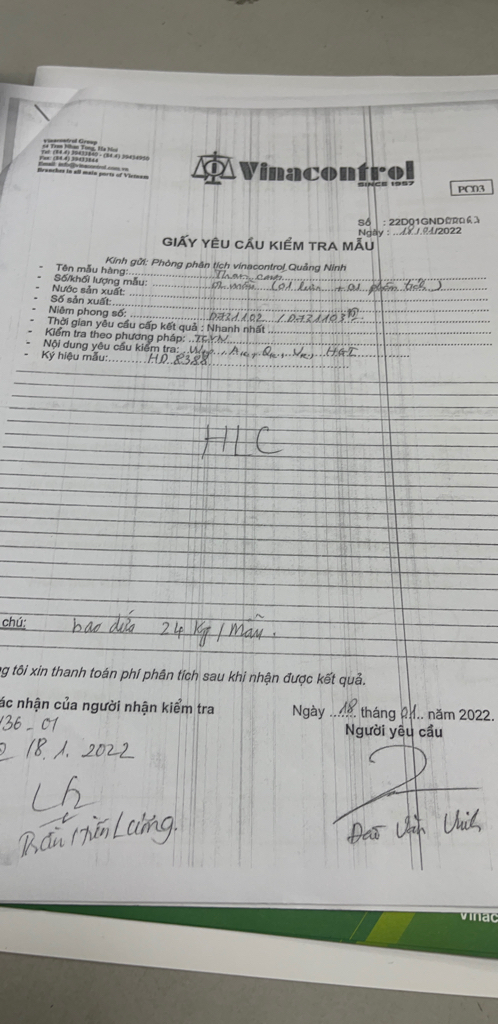 Vinacontrol Group
54 Tran Nhan Tong, Ha Noi
Tel: (84.4) 39433840 - (84.4) 39434950
Fax: (84.4) 39433844
Email: info@vinacontrol.com.vn
Branches in all main ports of Vietnam
Vinacontrol
SINCE 1957
PCD3
Số : 22D01GND
Ngày : ..18/01/2022
GIẤY YÊU CẦU KIỂM TRA MẪU
Kính gửi: Phòng phân tích vinacontrol Quảng Ninh
- Tên mẫu hàng: Than cám
- Số/khối lượng mẫu: (01 lưu + 01 phân tích)
- Nước sản xuất:
- Số sản xuất:
- Niêm phong số: 0721102 / 0721103
- Thời gian yêu cầu cấp kết quả : Nhanh nhất
- Kiểm tra theo phương pháp: TCVN
- Nội dung yêu cầu kiểm tra: HGI
- Ký hiệu mẫu: HD 8388
HLC
chú: bao dứa 24 kg / Mẫu.
g tôi xin thanh toán phí phân tích sau khi nhận được kết quả.
ác nhận của người nhận kiểm tra
Ngày 18 tháng 01 năm 2022.
Người yêu cầu
136 - 01
18.1.2022
Đào Văn
Vinac